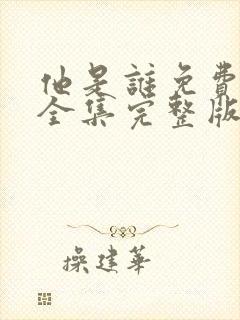 他是誰免費
全集完整版
操建華